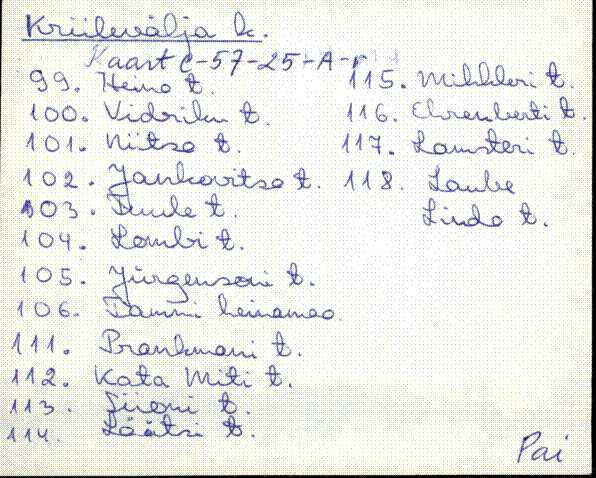 Kriilevälja k.
Kaart C-57-25-A-r
99. Heino t.
100. Vidriku t.
101. Niitso t.
102. Jankovitso t.
103. Tuule t.
104. Lombi t.
105. Jürgensoni t.
106. Tammi heinamaa
111. Prankmani t.
112. Kata Miti t.
113. Siioni t.
114. Läätsi t.
115. Mihkleri t.
116. Ehrenberti t.
117. Lamsteri t.
118. Laube
Lindo t.
Pai